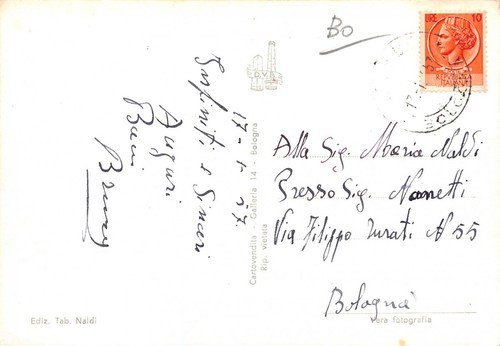 BO
LIRE 10
17-1-57.
Infiniti e Sinceri
Auguri
Baci
Bruno
D.V.B.
Cartovendita - Galleria 14 - Bologna
Rip. vietata
Alla Sig. Maria Naldi
Presso Sig. Nanetti
Via Filippo Turati N 55
Bologna
Ediz. Tab. Naldi
Vera fotografia